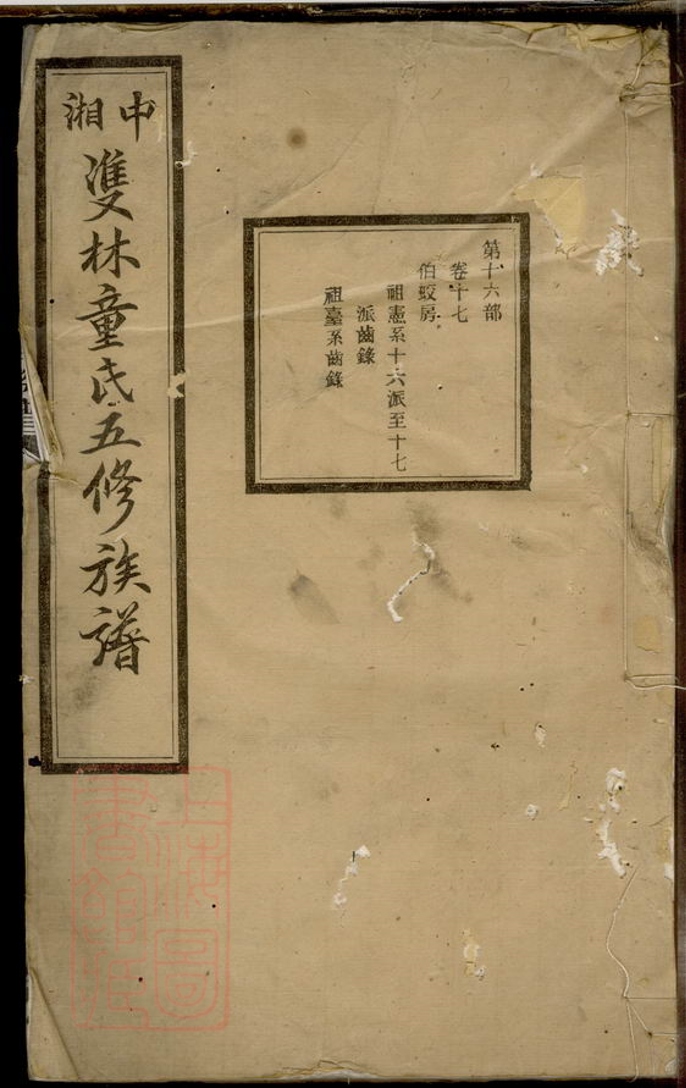 中湘
雙林童氏五修族譜
第十六部
卷十七
伯蛟房
祖憲系十六派至十七
派齒錄
祖臺系齒錄
上海圖
書館藏